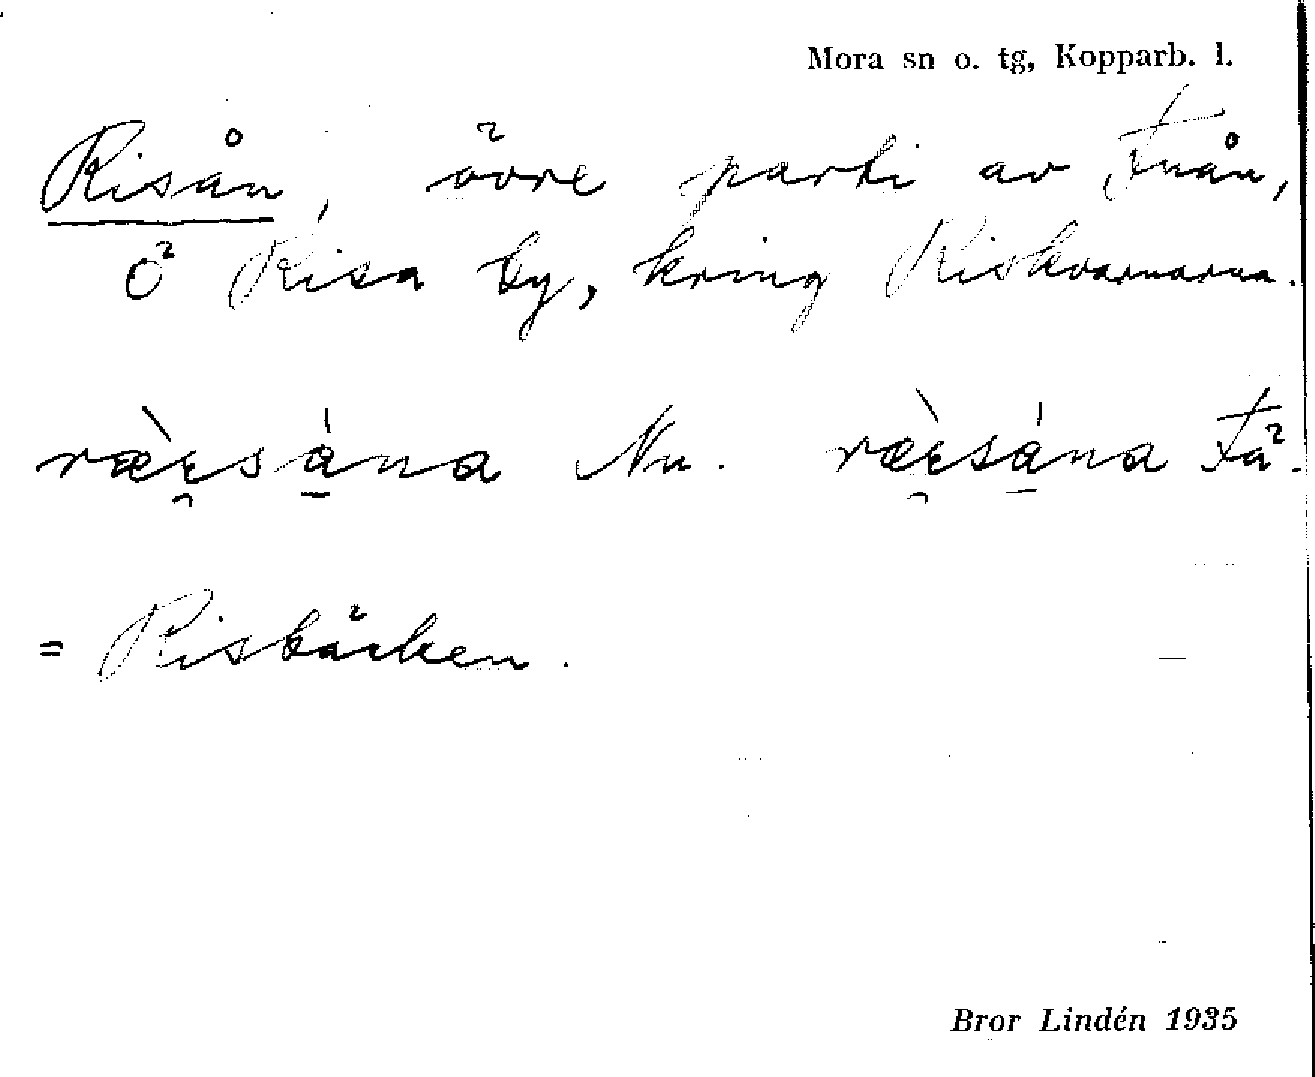 Mora sn o. tg, Kopparb. l.
Risån, övre parti av Fuån,
Ö Risa by, kring Riskvarnarna.
ræ̀ɛ̯sána Nu. ræ̀ɛ̯sána Fä.
= Risbäcken.
Bror Lindén 1935